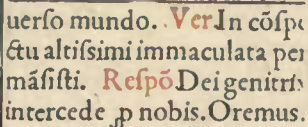 uerſo mundo. Ver. In cõſpe
ctu altiſſimi immaculata per
mãſiſti. Reſpõ Dei genitrix
intercede ꝓ nobis. Oremus.